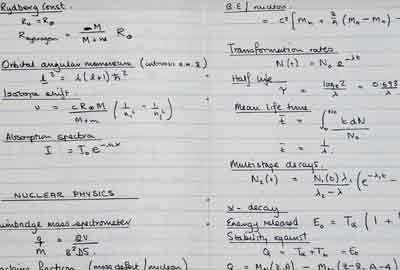 Rydberg Const.
R₀ = R∞
R_Hydrogen = M / (M + m) R∞
Orbital angular momentum
l² = l(l+1) ħ²
Isotope shift.
υ = c R∞ M / (M + m) (1/n₁² − 1/n₂²)
Absorption spectra
I = I₀ e
NUCLEAR PHYSICS
mass spectrometer
q/m = 2V / B²DS
fraction (mass defect/nucleon)
B.E/nucleon
= c² [Mn + (Mn − Mn) −
Transformation rates
N(t) = N₀ e^−λt
Half life
τ = loge2 / λ = 0.693
Mean life time
t̄ = ∫ t dN / N₀
t̄ = 1/λ
Multistage decays.
N₂(t) = N₁(0) λ₁ / (λ₂ − λ) (e^−λ₁t −
α - decay
Energy released E₀ = Tα (1 +
Stability against
Q = Tα + Tb = E₀